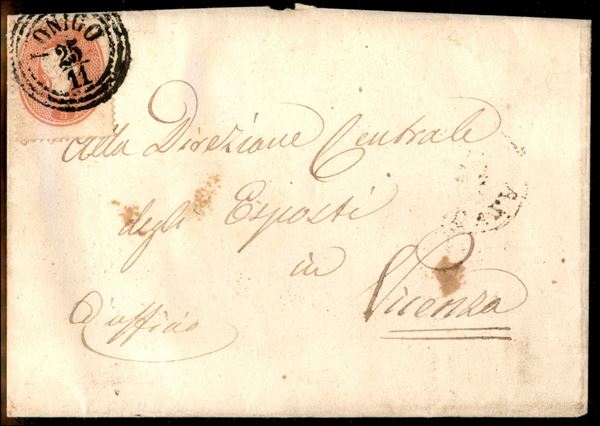 LONIGO
25
11
Alla Direzione Centrale
degli Esposti
in
Vicenza
d'uffizio